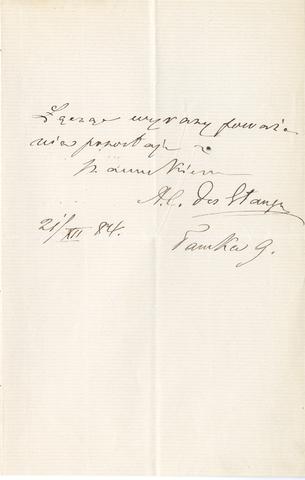 Łącząc wyrazy poważa
nia pozostaję z
szacunkiem
A. C. Des Etangs
21/XII 84.
Tamka 9.